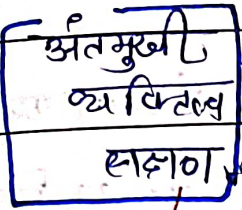 अंतमुखी
व्यक्तित्व
लक्षण